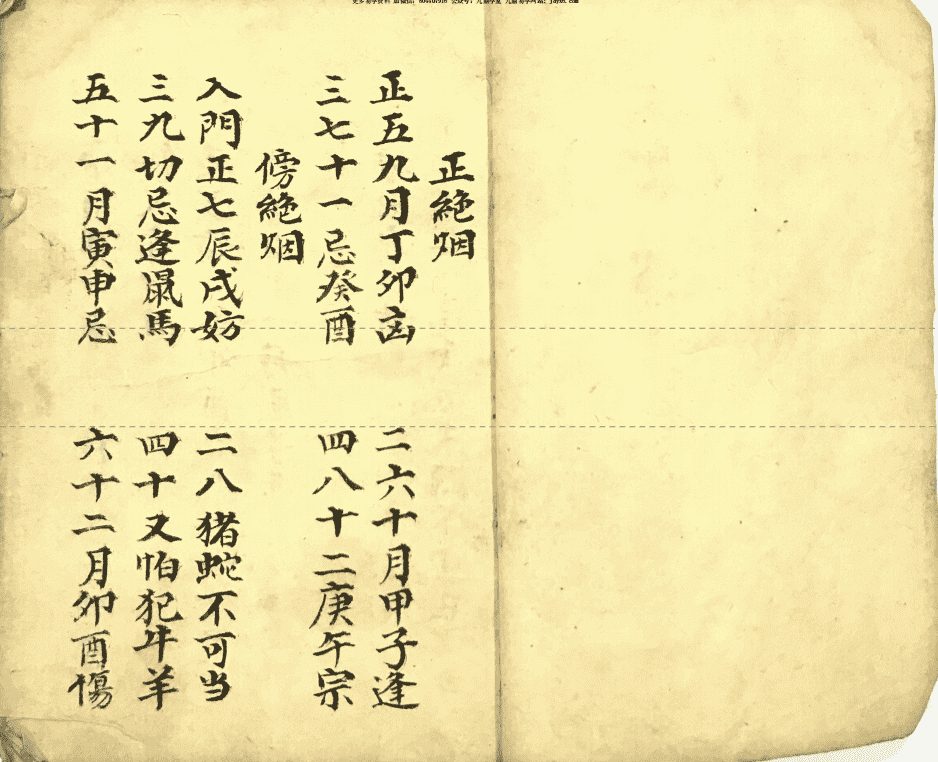 正絶烟
正五九月丁卯凶
二六十月甲子逢
三七十一忌癸酉
四八十二庚午宗
傍絶烟
入門正七辰戌妨
二八猪蛇不可当
三九切忌逢鼠馬
四十又怕犯牛羊
五十一月寅申忌
六十二月卯酉傷